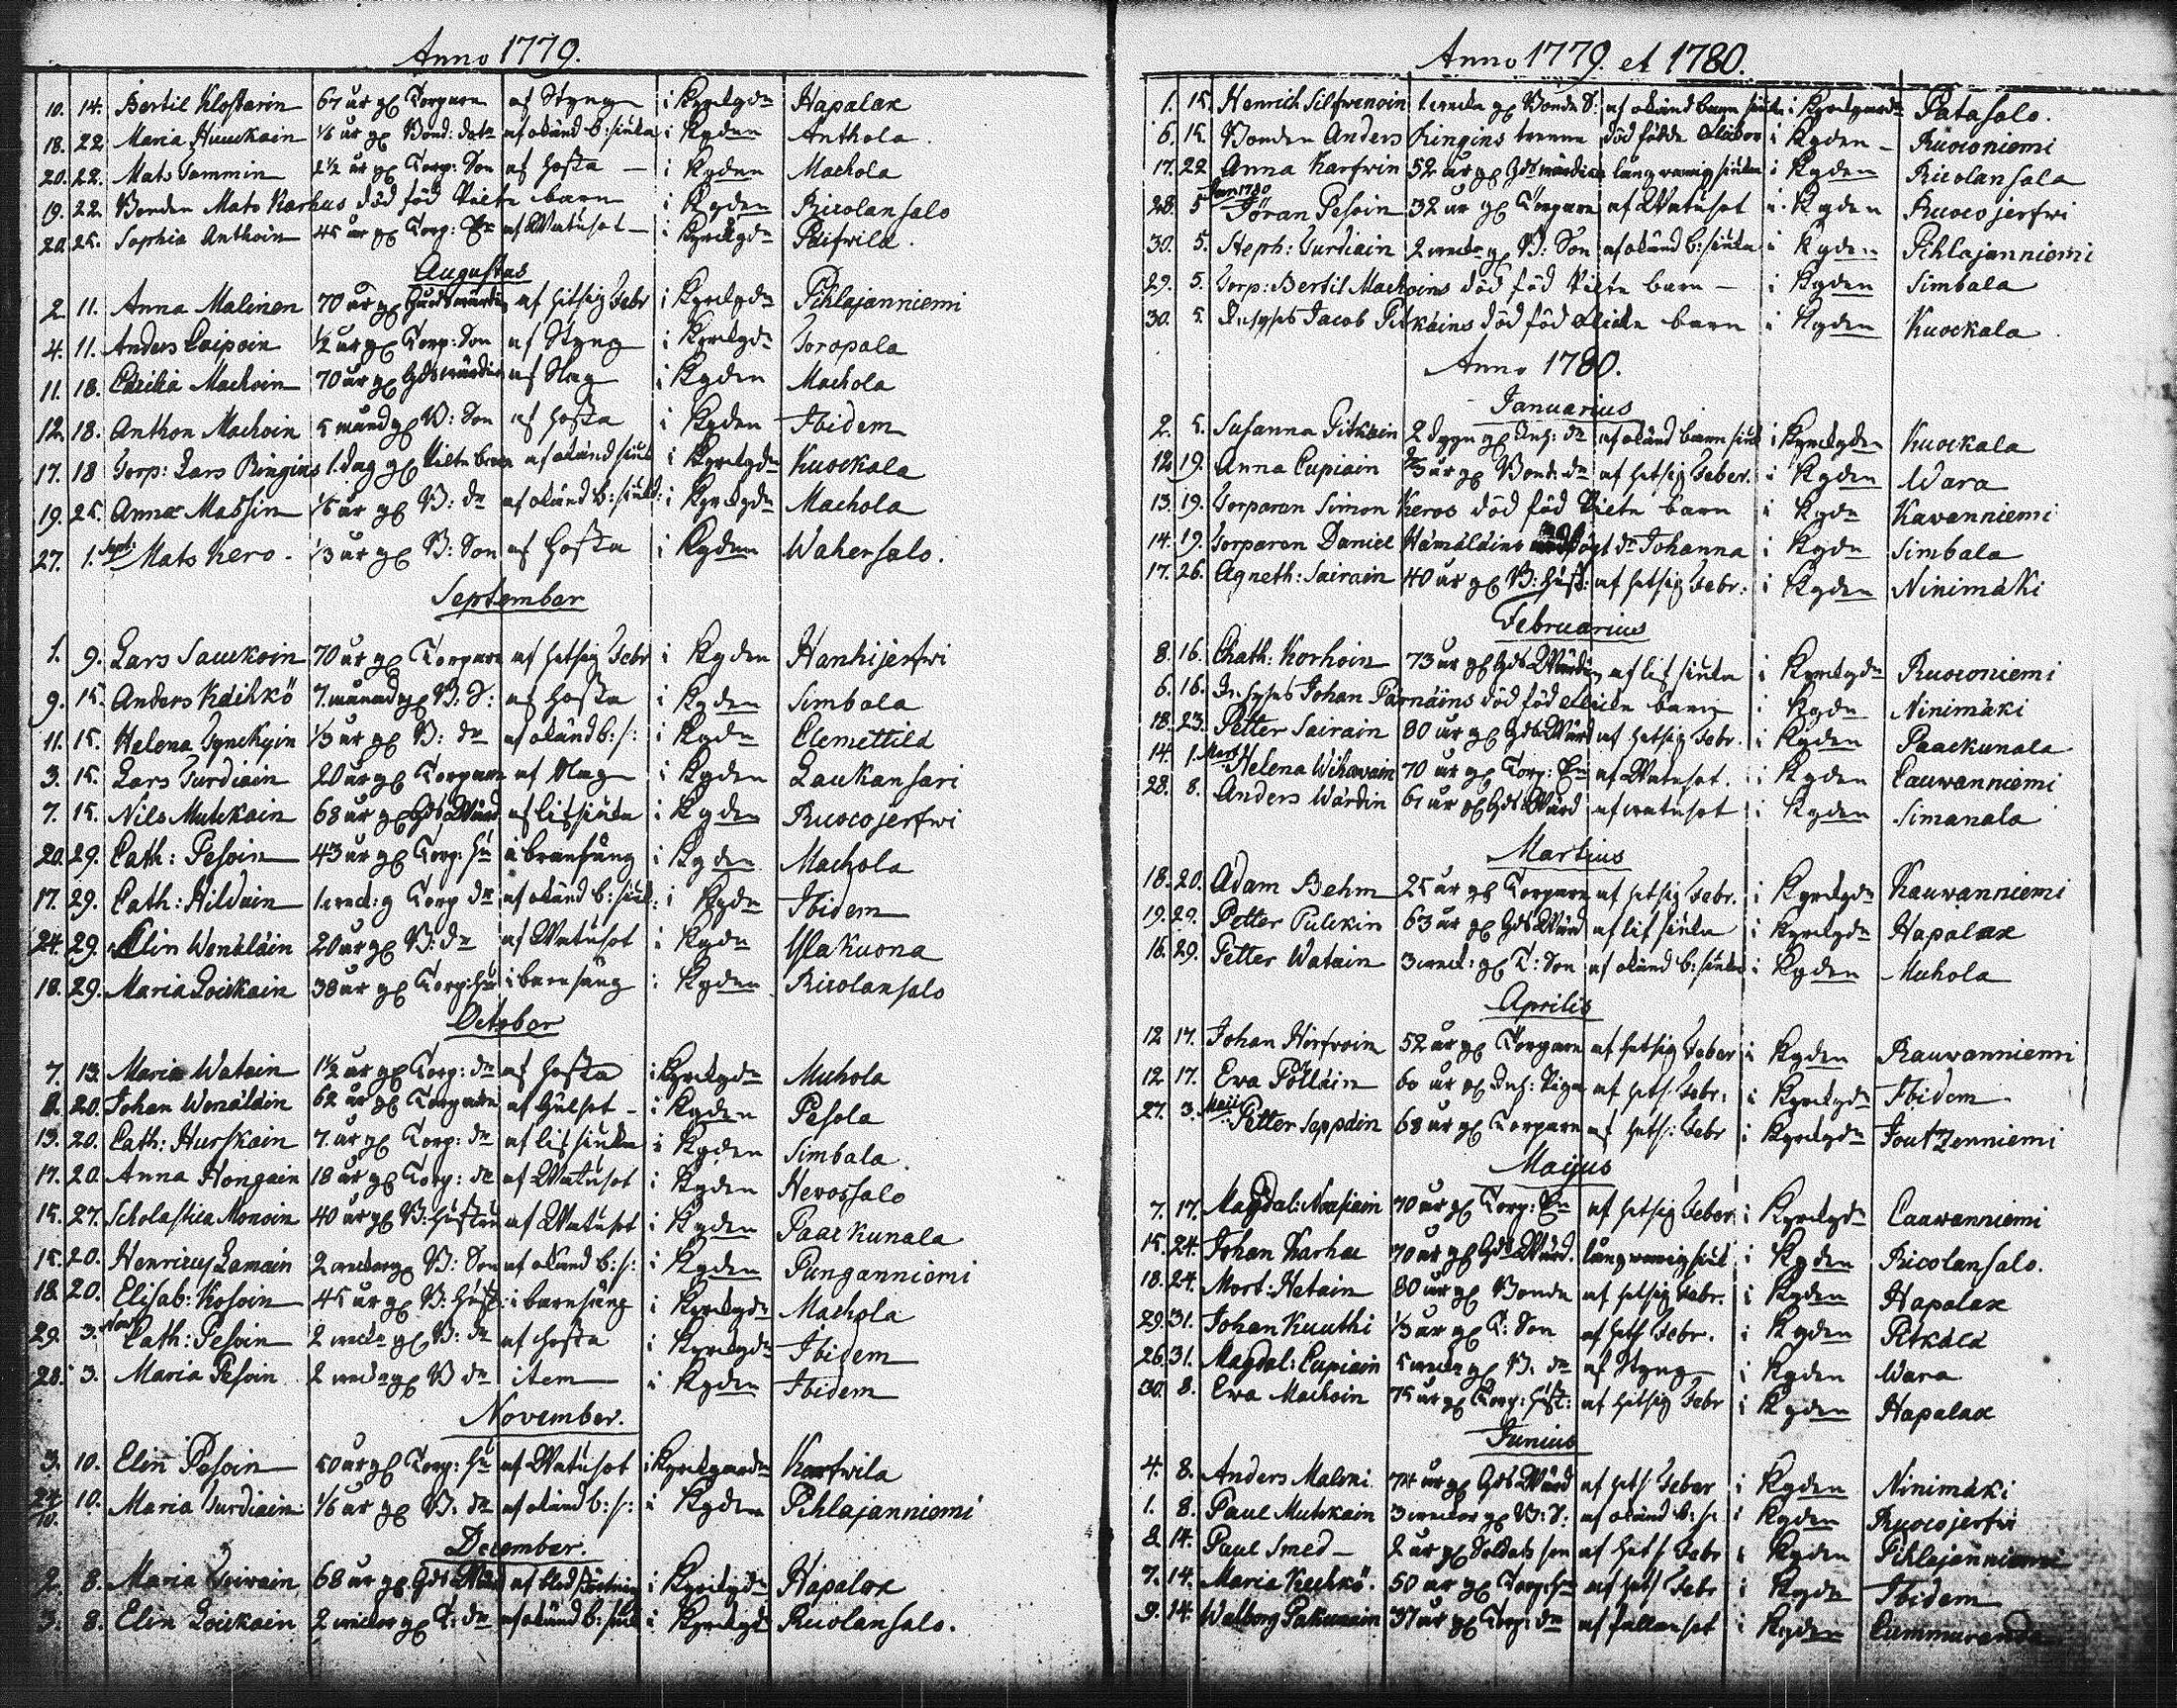 Anno 1779.
10. 14. Bertil Klostarin 67 år gl Torpare af Styng i Kyrckgdn Hapalax
18. 22 Maria Huuckain 1/6 år gl Bond: dotr af okänd b: siuka i Kgden Anthola
20. 22. Mats Tommin 2 1/2 år gl Torp: Son af Hosta i Kgden Machola
19. 22 Bonden Mats Karhus död föd Picke barn i Kgden Ricolansalo
20. 25. Sophia Anthoin 45 år gl Torp: af Watusot i Kyrckgdn Päifwilä.
Augustus
2 11. Anna Malinen 70 år gl af hitsig Febr i Kyrckgdn Pihlajanniemi
4. 11. Anders Laipoin 1/2 år gl Torp: Son af Styng i Kyrckgdn Joropala
11. 18. Cecilia Machoin 70 år gl af Slag i Kgden Machola
12 18. Anthon Machoin 5 månd gl B: Son af Hosta i Kgden Ibidem
17. 18 Torp: Lars Ringins 1. dag gl af okänd siuk i Kyrckgdn Kuockala
19. 25. Anna Massin 1/6 år gl B: dr af okänd b: siuk: i Kyrckgdn Machola
27. 1. Sept Mats Kero 1/3 år gl B: Son af Hosta i Kgden Wahersalo.
September
1. 9. Lars Sauckoin 70 år gl Torpare af hetsig Febr i Kgden Hanhijerfwi
9. 15. Anders Käihkö 7. månad gl B: S: af Hosta i Kgden Simbala
11. 15. Helena Tynckyin 1/3 år gl B: dr af okänd b: s: i Kgdn Clemettilä
3. 15. Lars Turdiain 20 år gl Torpare af Slag i Kgden Laukansari
7. 15. Nils Mutckain 68 år gl Gds Wärd af lifsiuka i Kgden Ruocojerfwi
20. 29. Cath: Pesoin 43 år gl Torp: hu i i Kgden Machola
17. 29. Cath: Hilduin 1 weck: g Torp dr af okänd b: siuk: i Kgdn Ibidem
24. 29. Elin Wenäläin 20 år gl B: dr af Watusot i Kgdn Yläkuona
18. 29. Maria Loickain 38 år gl Torp: hu i barnsäng i Kgden Ricolansalo
October
7. 13. Maria Watain 1 1/2 år gl Torp: dr af Hosta i Kyrckgdn Muhola
8. 20. Johan Wenäläin 62 år gl Torpare af Gulsot i Kgden Pesola
13. 20. Cath: Hurskain 7. år gl Torp: dr af lifsiuka i Kgden Simbala
17. 20. Anna Hongain 18 år gl Torp: dr af Watusot i Kgden Herossalo
15. 27. Scholastica Monoin 40 år gl B: hustru af Watusot i Kgden Paackunala
15. 20. Henricus Lamain 2 weckor gl B: Son af okänd b: s: i Kgden Punganniemi
18. 20. Elisab: Kosoin 45 år gl B: Hust: i barnsäng i Kyrckgdn Machola
29. 3. Nov Cath: Pesoin 2 weck gl B: dr af Hosta i Kyrckgdn Ibidem
28. 3. Maria Pesoin 2 weck gl B dr item i Kgden Ibidem
November.
3. 10. Elin Pesoin 50 år gl Torp: hu af Watusot i Kyrckgaardn Karfwila
24/10. 10. Maria Turdiain 1/6 år gl B: dr af okänd b: s: i Kgden Pihlajanniemi
December.
2. 8. Maria 68 år gl Gds Wärd af blodstörtning i Kyrckgdn Hapalox
3. 8. Elin Loickain 2 weckor gl T: dr af okänd b: siuk i Kyrckgd Ricolansalo.
Anno 1779. et 1780.
1. 15. Henrich Silfwenoin 1. wecka gl Bonde S: af okänd barn siuka i Kyrckgaardn Patasalo.
6. 15. Bonden Anders Ringins trenne död födde i Kgden Ruoconiemi
17. 22 Anna Karfwin 52 år gl långwarig siuka i Kgden Ricolansala
28. 5 Jan 1780 Jöran Pesoin 32 år gl Torpare af Watusot i Kgden Ruocojerfwi
30. 5. Steph: Turdiain 2 weck gl B: Son af okänd b: siuka i Kgden Pihlajanniemi
29. 5. Torp: Bertil Machoins död föd Picke barn i Kgden Simbala
30. 5. Inhyses Jacob Pitkäins död föd Picke barn i Kgden Kuockala
Anno 1780.
Januarius
2. 5. Susanna Pitkäin 2 dygn gl Inh: dr af okänd barn siuk i Kyrckgden Kuockala
12 19. Anna Cupiain 2/3 år gl Bond: dr af hetsig Feber. i Kgden Wara
13. 19. Torparen Simon Keros död föd Picke barn i Kgdn Kavanniemi
14. 19. Torparen Daniel Hämäläins dr Johanna i Kgdn Simbala
17. 26. Agneth: Sairain 40 år gl B: hust: af hetsig Febr: i Kgden Ninimäki
Februarius
8. 16. Chath: Korhoin 73 år gl Gds Wärdin af lifsiuka i Kyrckgdn Ruoconiemi
6. 16. Inhyses Johan Pärnäins död föd Picke barn i Kgdn Ninimäki
18. 23. Petter Sairain 80 år gl Gds Wärd af hetsig Febr. i Kgden Paackunala
14. 1. Mart Helena Wihavain 70 år gl Torp: af Watusot. i Kgden Cauwanniemi
28. 8. Anders Wärdin 61 år gl Gds Wärd af watusot i Kgden Simanala
Martius
18. 20. Adam Behm 25 år gl Torpare af hetsig Febr. i Kyrckgdn Kauwanniemi
19. 29. Petter Pulckin 63 år gl Gds Wärd af lifsiuka i Kyrckgdn Hapalax
16. 29. Petter Watain 3 weck: gl T: Son af okänd b: siuka i Kgden Muhola
Aprilis
12 17. Johan Hirfwoin 52 år gl Torpare af hetsig Feber i Kgden Rauwanniemi
12 17. Ewa Pölläin 60 år gl Inh: Piga af hets: Febr. i Kyrckgdn Ibidem
27. 3. Maii Petter Seppäin 68 år gl Torpare af hets: Febr i Kyrckgdn Joutzenniemi
Maijus
7. 17. Magdal: 70 år gl Torp: af hetsig Feber i Kyrckgdn Cauwanniemi
15. 24. Johan Karhu 70 år gl Gds Wärd. långwarig siuk i Kgden Ricolansalo.
18. 24. Mort: Hatain 80 år gl Bonde af hetsig Febr. i Kgden Hapalax
29 31. Johan Kuuthi 1/3 år gl T: Son af hets Febr. i Kgden Pitkälä
26. 31. Magdal: Cupiain 5 weck gl B: dr af Styng i Kgden Wara
30. 8. Ewa Machoin 75 år gl Torp: hust: af hetsig Febr i Kgden Hapalax
Junius
4. 8. Anders Maloni 74 år gl Gds Wärd af hets Feber i Kgden Ninimäki
1. 8. Paul Mutckain 3 weckor gl B: S: af okänd b: s: i Kgden Ruocojerfwi
8 14. Paul Smed 2 år gl Soldats son af hets Febr i Kgden Pihlajanniemi
7. 14. Maria Kechkö. 50 år gl Torp: hu af hets Febr i Kgdn Ibidem
9. 14. Walborg Pakunain 37 år gl Torp: dr af fallansot i Kgden Cummuranda